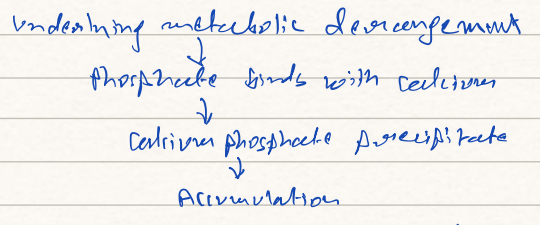 underlining metabolic derrangement
↓
Phosphate binds with calcium
↓
Calcium phosphate precipitate
↓
Accumulation